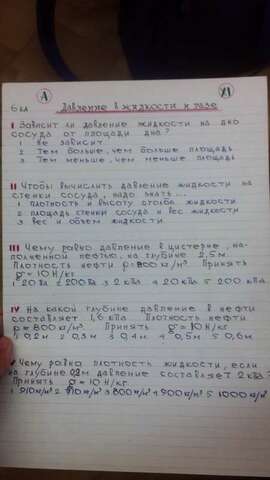 А
XI
6 кл Давление в жидкости и газе
I Зависит ли давление жидкости на дно
сосуда от площади дна?
1 Не зависит
2 Тем больше, чем больше площадь
3 Тем меньше, чем меньше площадь
II Чтобы вычислить давление жидкости на
стенки сосуда, надо знать...
1 плотность и высоту столба жидкости
2 площадь стенки сосуда и вес жидкости
3 вес и объем жидкости
III Чему равно давление в цистерне, на-
полненной нефтью, на глубине 2,5 м
Плотность нефти ρ=800 кг/м³. Принять
g=10 Н/кг
1 20 Па 2 200 Па 3 2 кПа 4 20 кПа 5 200 кПа
IV На какой глубине давление в нефти
составляет 1,6 кПа Плотность нефти
ρ=800 кг/м³. Принять g=10 Н/кг
1 0,2 м 2 0,3 м 3 0,4 м 4 0,5 м 5 0,6 м
Чему равно плотность жидкости, если
на глубине 0,2 м давление составляет 2 кПа?
Принять g=10 Н/кг
3 800 кг/м³ 4 900 кг/м³ 5 1000 кг/м³